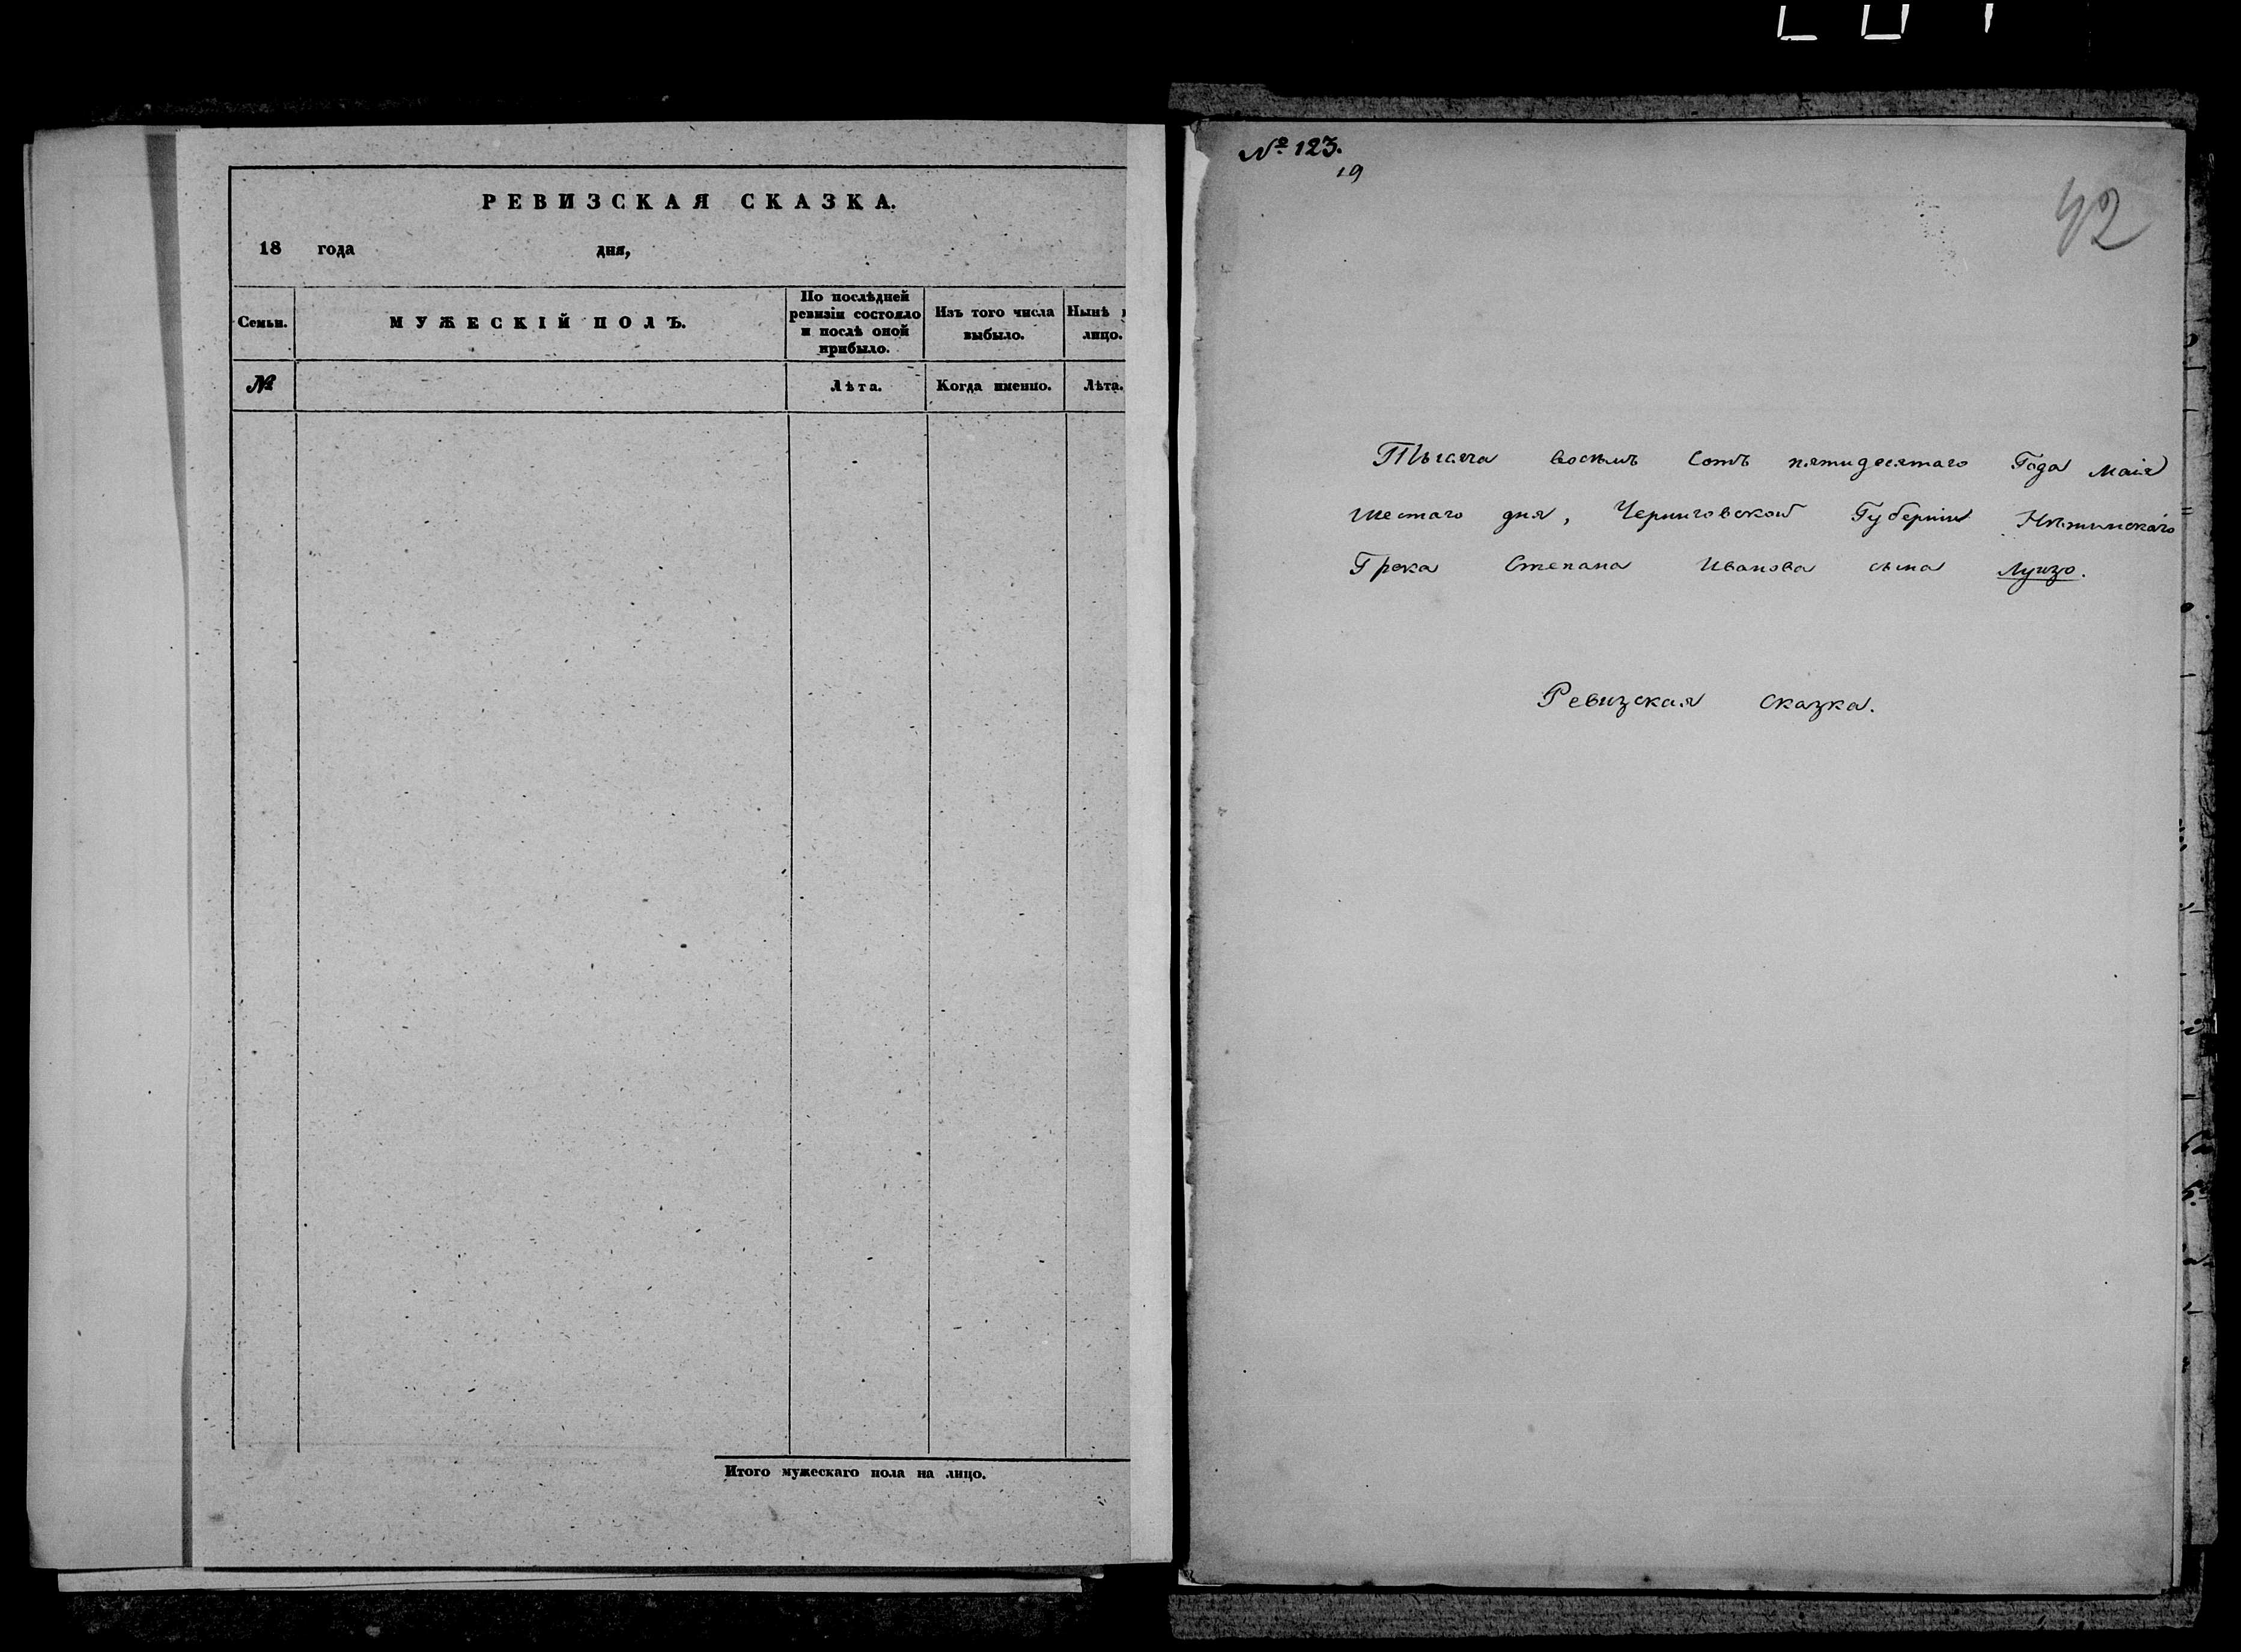 РЕВИЗСКАЯ СКАЗКА.
18 года дня,
Семьи.
МУЖЕСКІЙ ПОЛЪ.
По послѣдней
ревизіи состояло
и послѣ оной
прибыло.
Изъ того числа
выбыло.
Нынѣ
лицо.
№
Лѣта.
Когда именно.
Лѣта.
Итого мужескаго пола на лицо.
№ 123.
19
42
Тысяча восемь сотъ пятидесятаго Года Маія
шестаго дня, Черниговской Губерніи Нѣжинскаго
Грека Степана Иванова сына
Ревизская сказка.